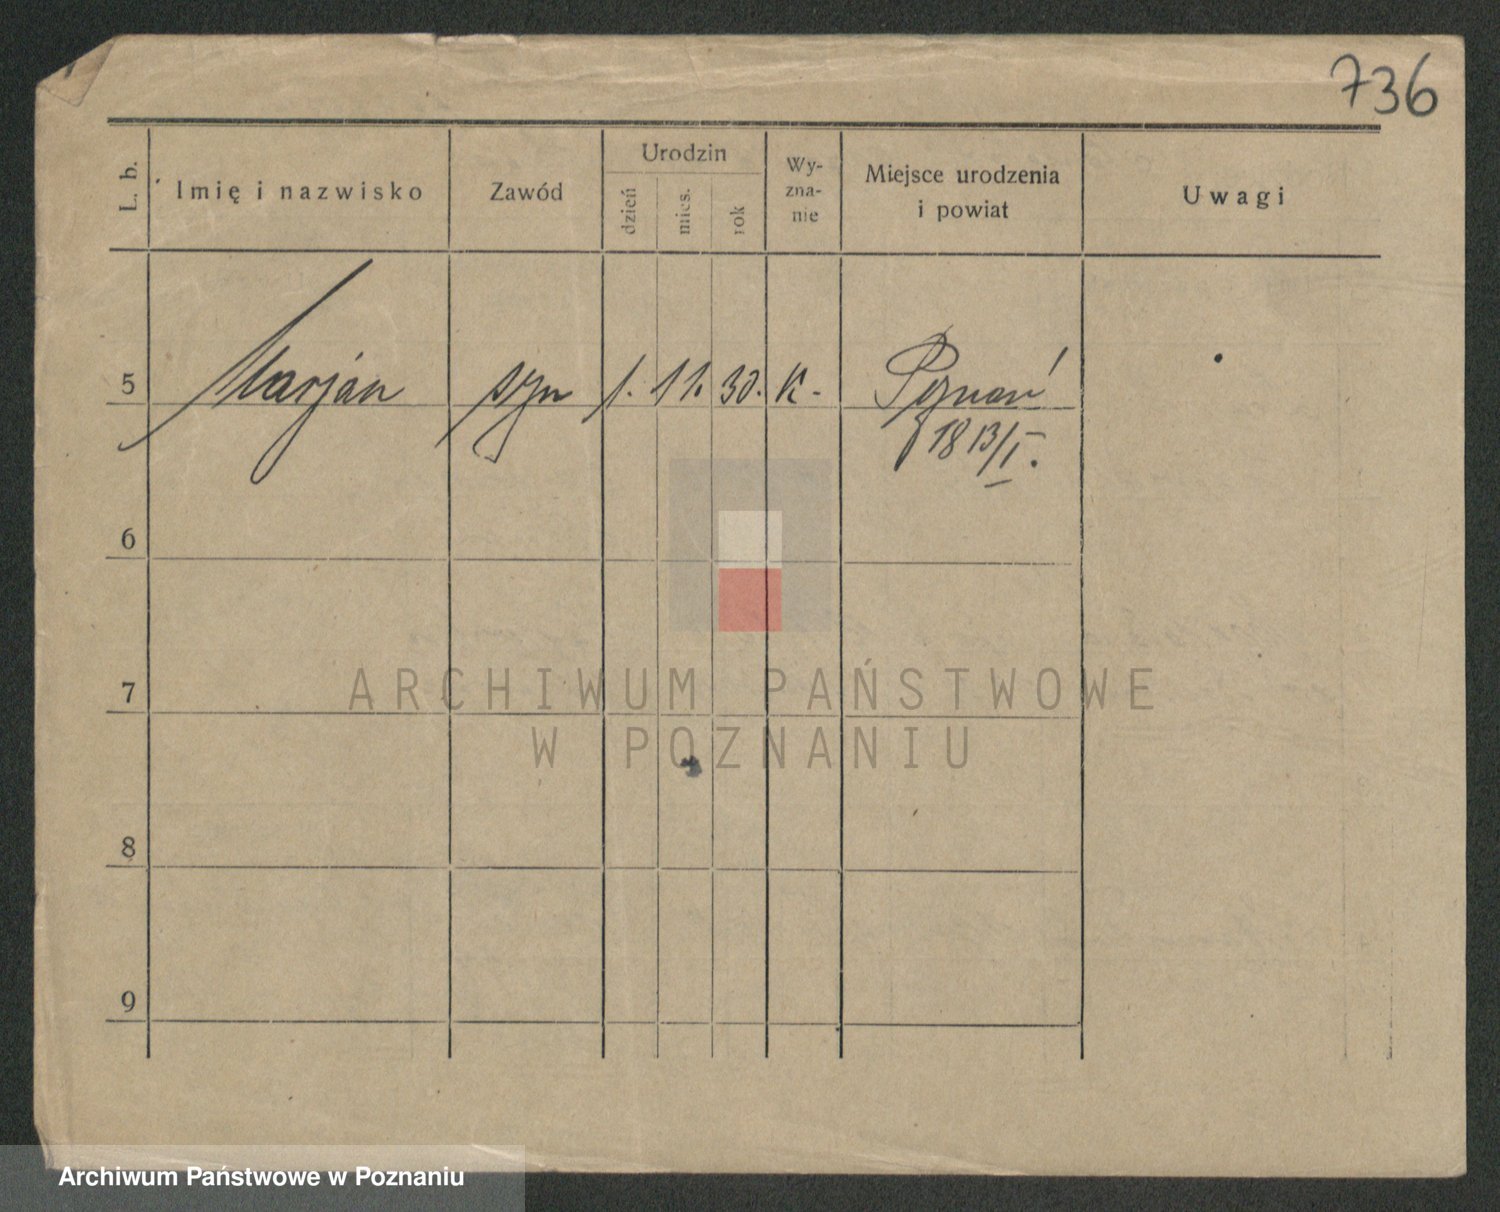 736
L. b.
Imię i nazwisko
Zawód
Urodzin
dzień
mies.
rok
Wy-
zna-
nie
Miejsce urodzenia
i powiat
Uwagi
5 Marjan syn 1. 11. 30. K. Poznań
6
7
8
9
ARCHIWUM PAŃSTWOWE
W POZNANIU
Archiwum Państwowe w Poznaniu